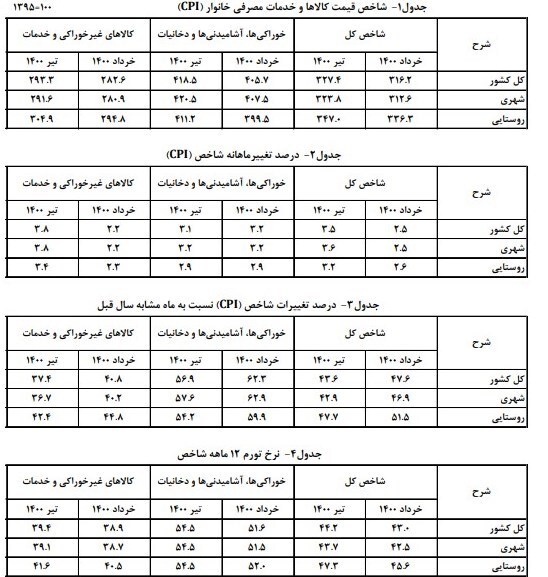 جدول۱- شاخص قیمت کالاها و خدمات مصرفی خانوار (CPI) ۱۳۹۵=۱۰۰
شرح شاخص کل خوراکی‌ها، آشامیدنی‌ها و دخانیات کالاهای غیرخوراکی و خدمات
خرداد ۱۴۰۰ تیر ۱۴۰۰ خرداد ۱۴۰۰ تیر ۱۴۰۰ خرداد ۱۴۰۰ تیر ۱۴۰۰
کل کشور ۳۱۶.۲ ۳۲۷.۴ ۴۰۵.۷ ۴۱۸.۵ ۲۸۲.۶ ۲۹۳.۳
شهری ۳۱۲.۶ ۳۲۳.۸ ۴۰۷.۵ ۴۲۰.۵ ۲۸۰.۹ ۲۹۱.۶
روستایی ۳۳۶.۳ ۳۴۷.۰ ۳۹۹.۵ ۴۱۱.۲ ۲۹۴.۸ ۳۰۴.۹
جدول۲- درصد تغییرماهانه شاخص (CPI)
شرح شاخص کل خوراکی‌ها، آشامیدنی‌ها و دخانیات کالاهای غیرخوراکی و خدمات
خرداد ۱۴۰۰ تیر ۱۴۰۰ خرداد ۱۴۰۰ تیر ۱۴۰۰ خرداد ۱۴۰۰ تیر ۱۴۰۰
کل کشور ۲.۵ ۳.۵ ۳.۲ ۳.۱ ۲.۲ ۳.۸
شهری ۲.۵ ۳.۶ ۳.۲ ۳.۲ ۲.۲ ۳.۸
روستایی ۲.۶ ۳.۲ ۲.۹ ۲.۹ ۲.۳ ۳.۴
جدول۳- درصد تغییرات شاخص (CPI) نسبت به ماه مشابه سال قبل
شرح شاخص کل خوراکی‌ها، آشامیدنی‌ها و دخانیات کالاهای غیرخوراکی و خدمات
خرداد ۱۴۰۰ تیر ۱۴۰۰ خرداد ۱۴۰۰ تیر ۱۴۰۰ خرداد ۱۴۰۰ تیر ۱۴۰۰
کل کشور ۴۷.۶ ۴۳.۶ ۶۲.۳ ۵۶.۹ ۴۰.۸ ۳۷.۴
شهری ۴۶.۹ ۴۲.۹ ۶۲.۹ ۵۷.۶ ۴۰.۲ ۳۶.۷
روستایی ۵۱.۵ ۴۷.۷ ۵۹.۹ ۵۴.۲ ۴۴.۸ ۴۲.۴
جدول۴- نرخ تورم ۱۲ ماهه شاخص
شرح شاخص کل خوراکی‌ها، آشامیدنی‌ها و دخانیات کالاهای غیرخوراکی و خدمات
خرداد ۱۴۰۰ تیر ۱۴۰۰ خرداد ۱۴۰۰ تیر ۱۴۰۰ خرداد ۱۴۰۰ تیر ۱۴۰۰
کل کشور ۴۳.۰ ۴۴.۲ ۵۱.۶ ۵۴.۵ ۳۸.۹ ۳۹.۴
شهری ۴۲.۵ ۴۳.۷ ۵۱.۵ ۵۴.۵ ۳۸.۷ ۳۹.۱
روستایی ۴۵.۶ ۴۷.۳ ۵۲.۰ ۵۴.۵ ۴۰.۵ ۴۱.۶